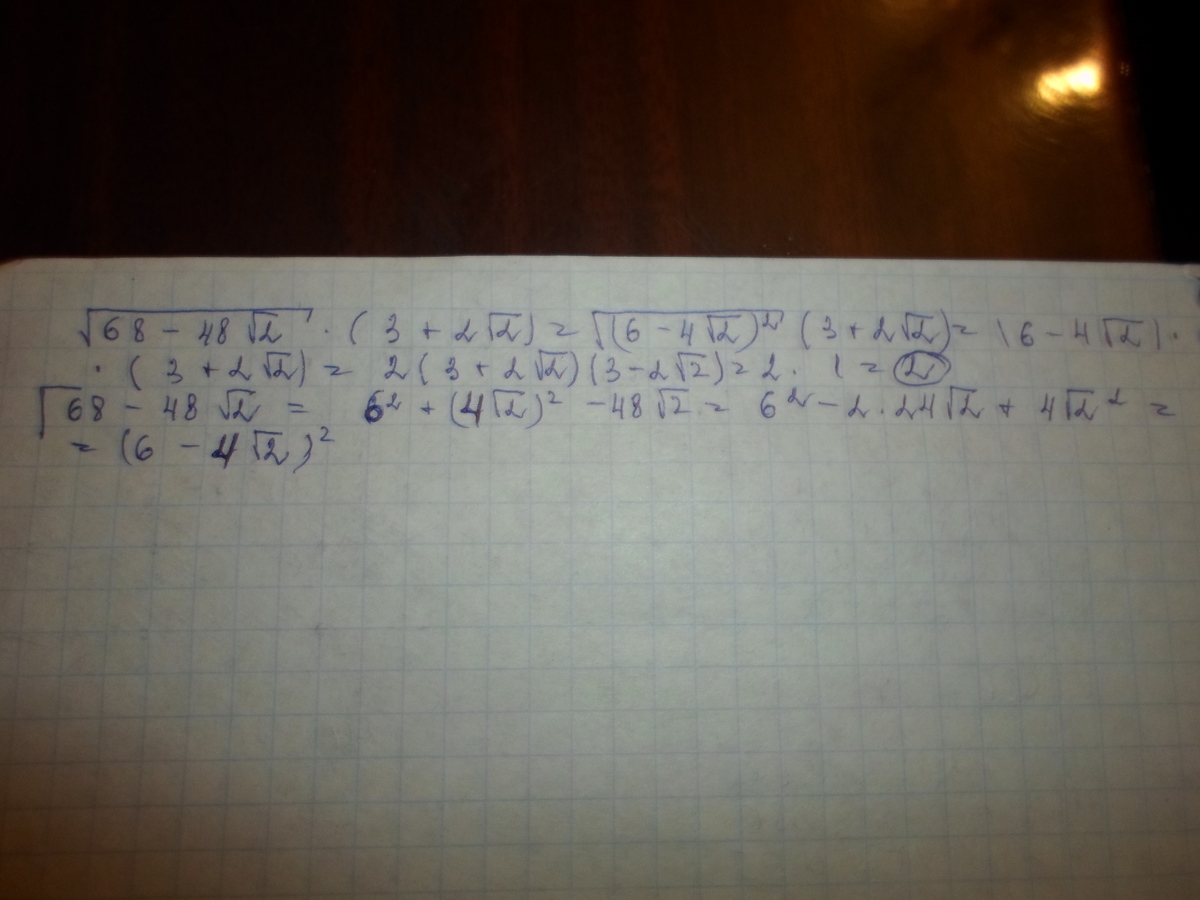 √68 - 48√2 · (3 + 2√2) = √(6 - 4√2)² (3 + 2√2) = |6 - 4√2| ·
· (3 + 2√2) = 2(3 + 2√2)(3 - 2√2) = 2 · 1 = 2
√68 - 48√2 = 6² + (4√2)² - 48√2 = 6² - 2 · 24√2 + 4√2² =
= (6 - 4√2)²